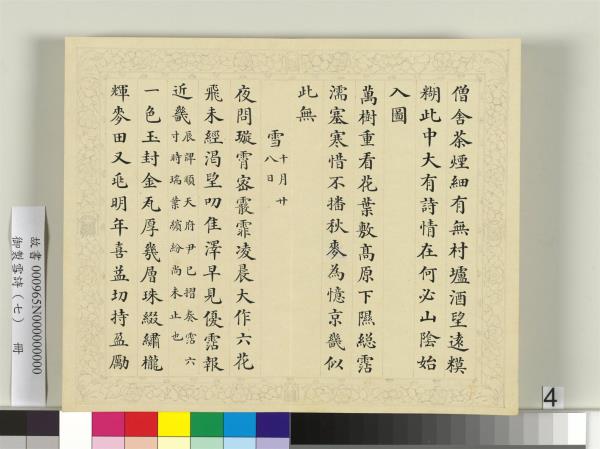 僧舍茶煙細有無村壚酒望遠糢
糊此中大有詩情在何必山陰始
入圖
萬樹重看花葉敷高原下隰總霑
濡塞寒惜不播秋麥為憶京畿似
此無
雪 十月廿
八日
夜問璇霄密霰霏凌晨大作六花
飛未經渴望叨佳澤早見優霑報
近畿 辰順天府尹已摺奏霑六
寸時瑞葉繽紛尚未止也
一色玉封金瓦厚幾層珠綴繡櫳
輝麥田又兆明年喜益切持盈勵
故書 000965N000000000
御製雪詩（七） 冊
4